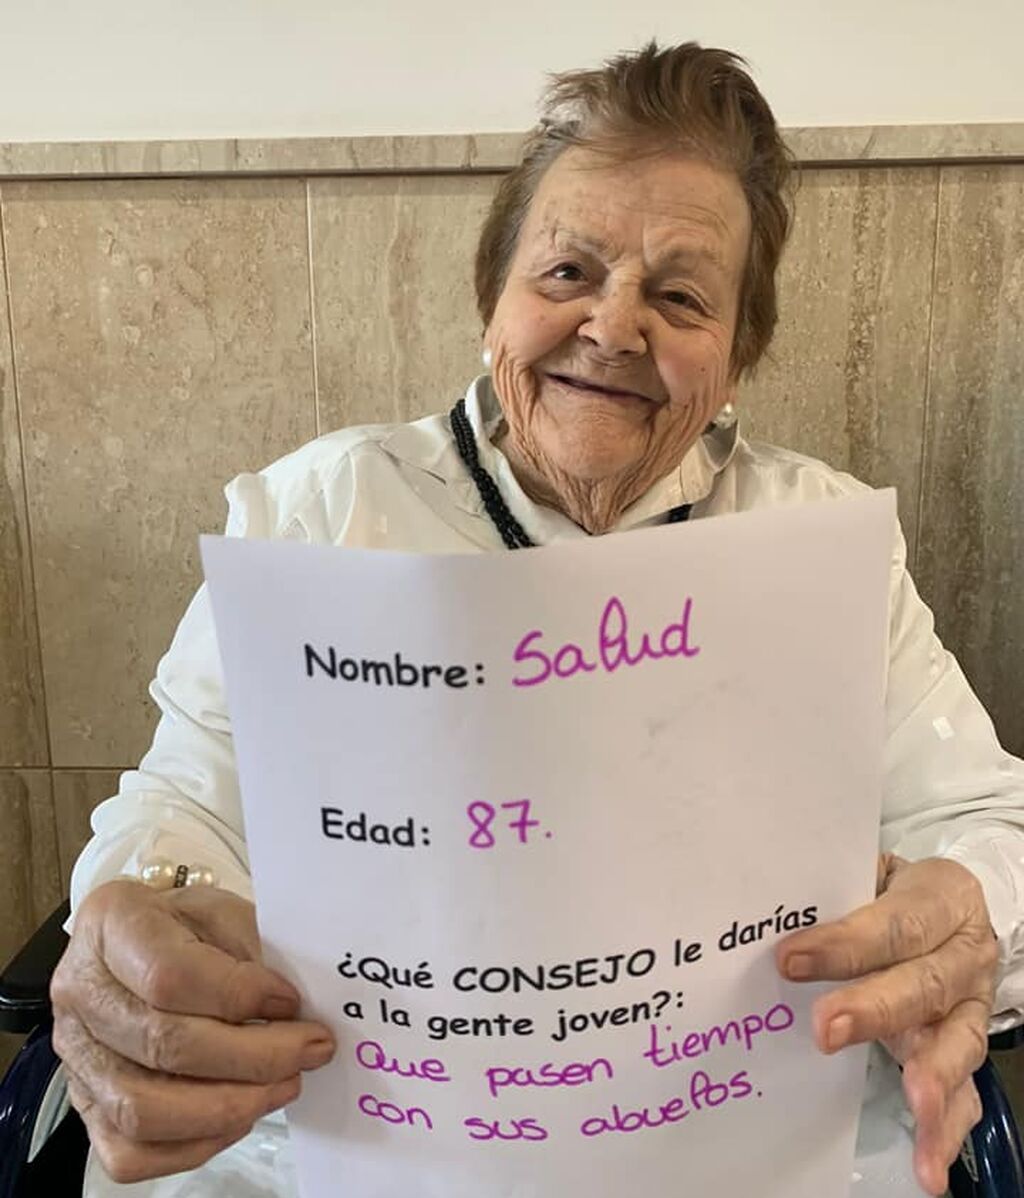 Nombre: Salud
Edad: 87.
¿Qué CONSEJO le darías
a la gente joven?:
Que pasen tiempo
con sus abuelos.